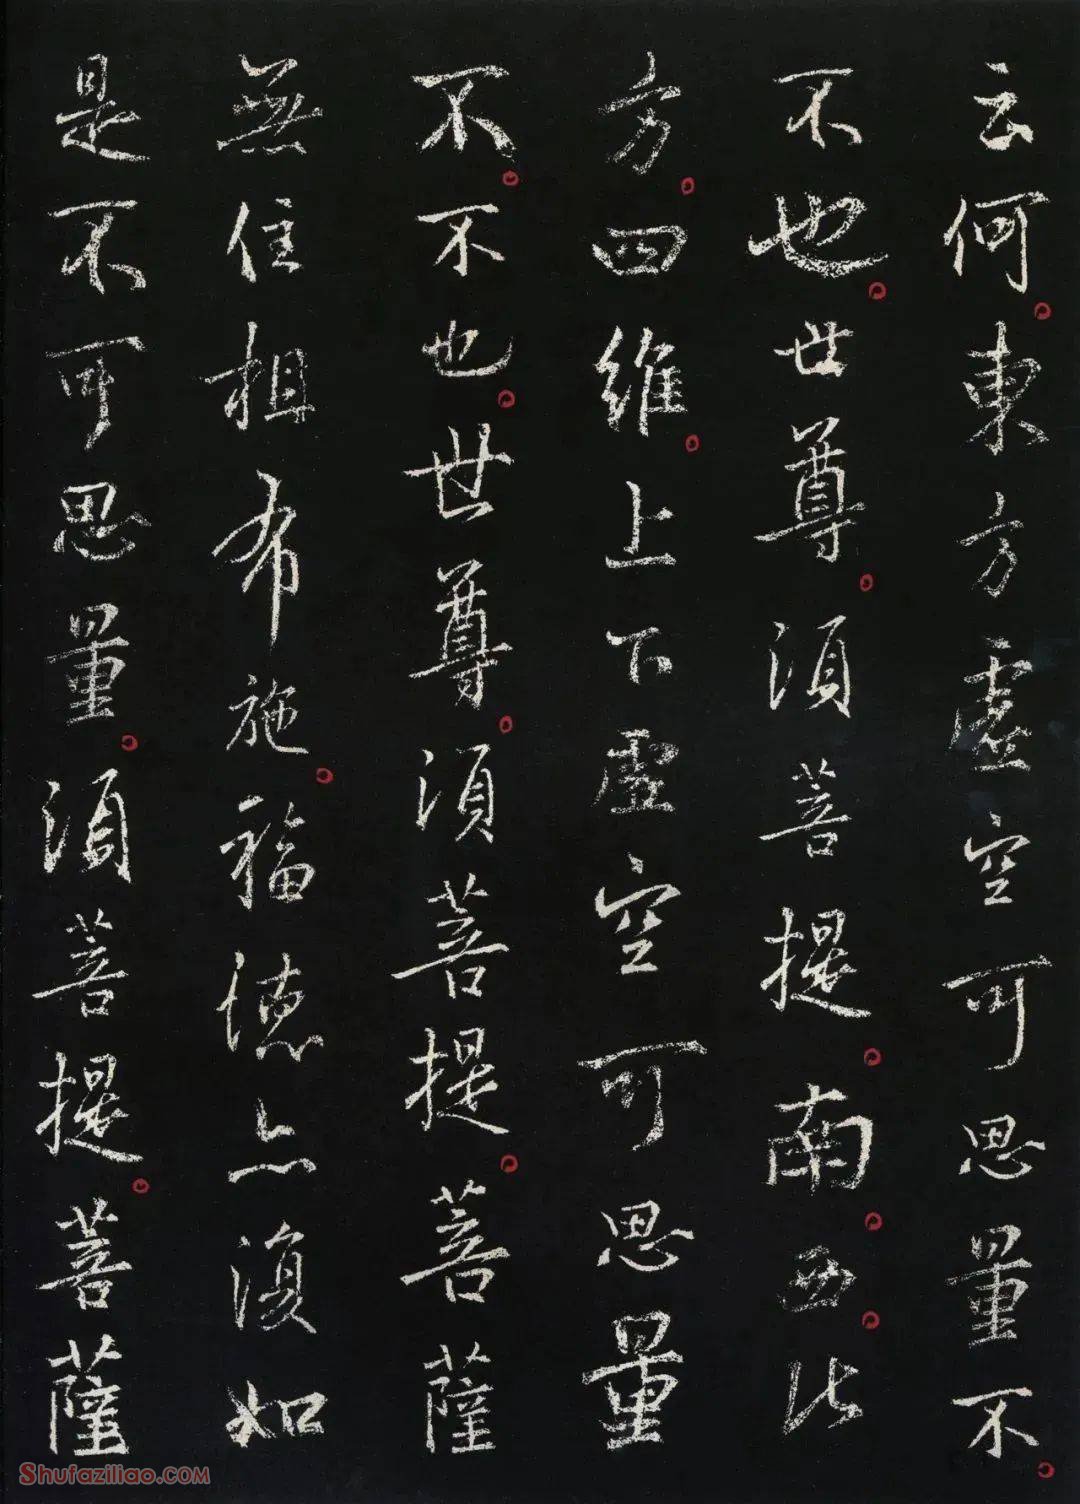 云何東方虛空可思量不
不也世尊須菩提南西北
方四維上下虛空可思量
不不也世尊須菩提菩薩
無住相布施福德亦復如
是不可思量須菩提菩薩
Shufaziliao.COM